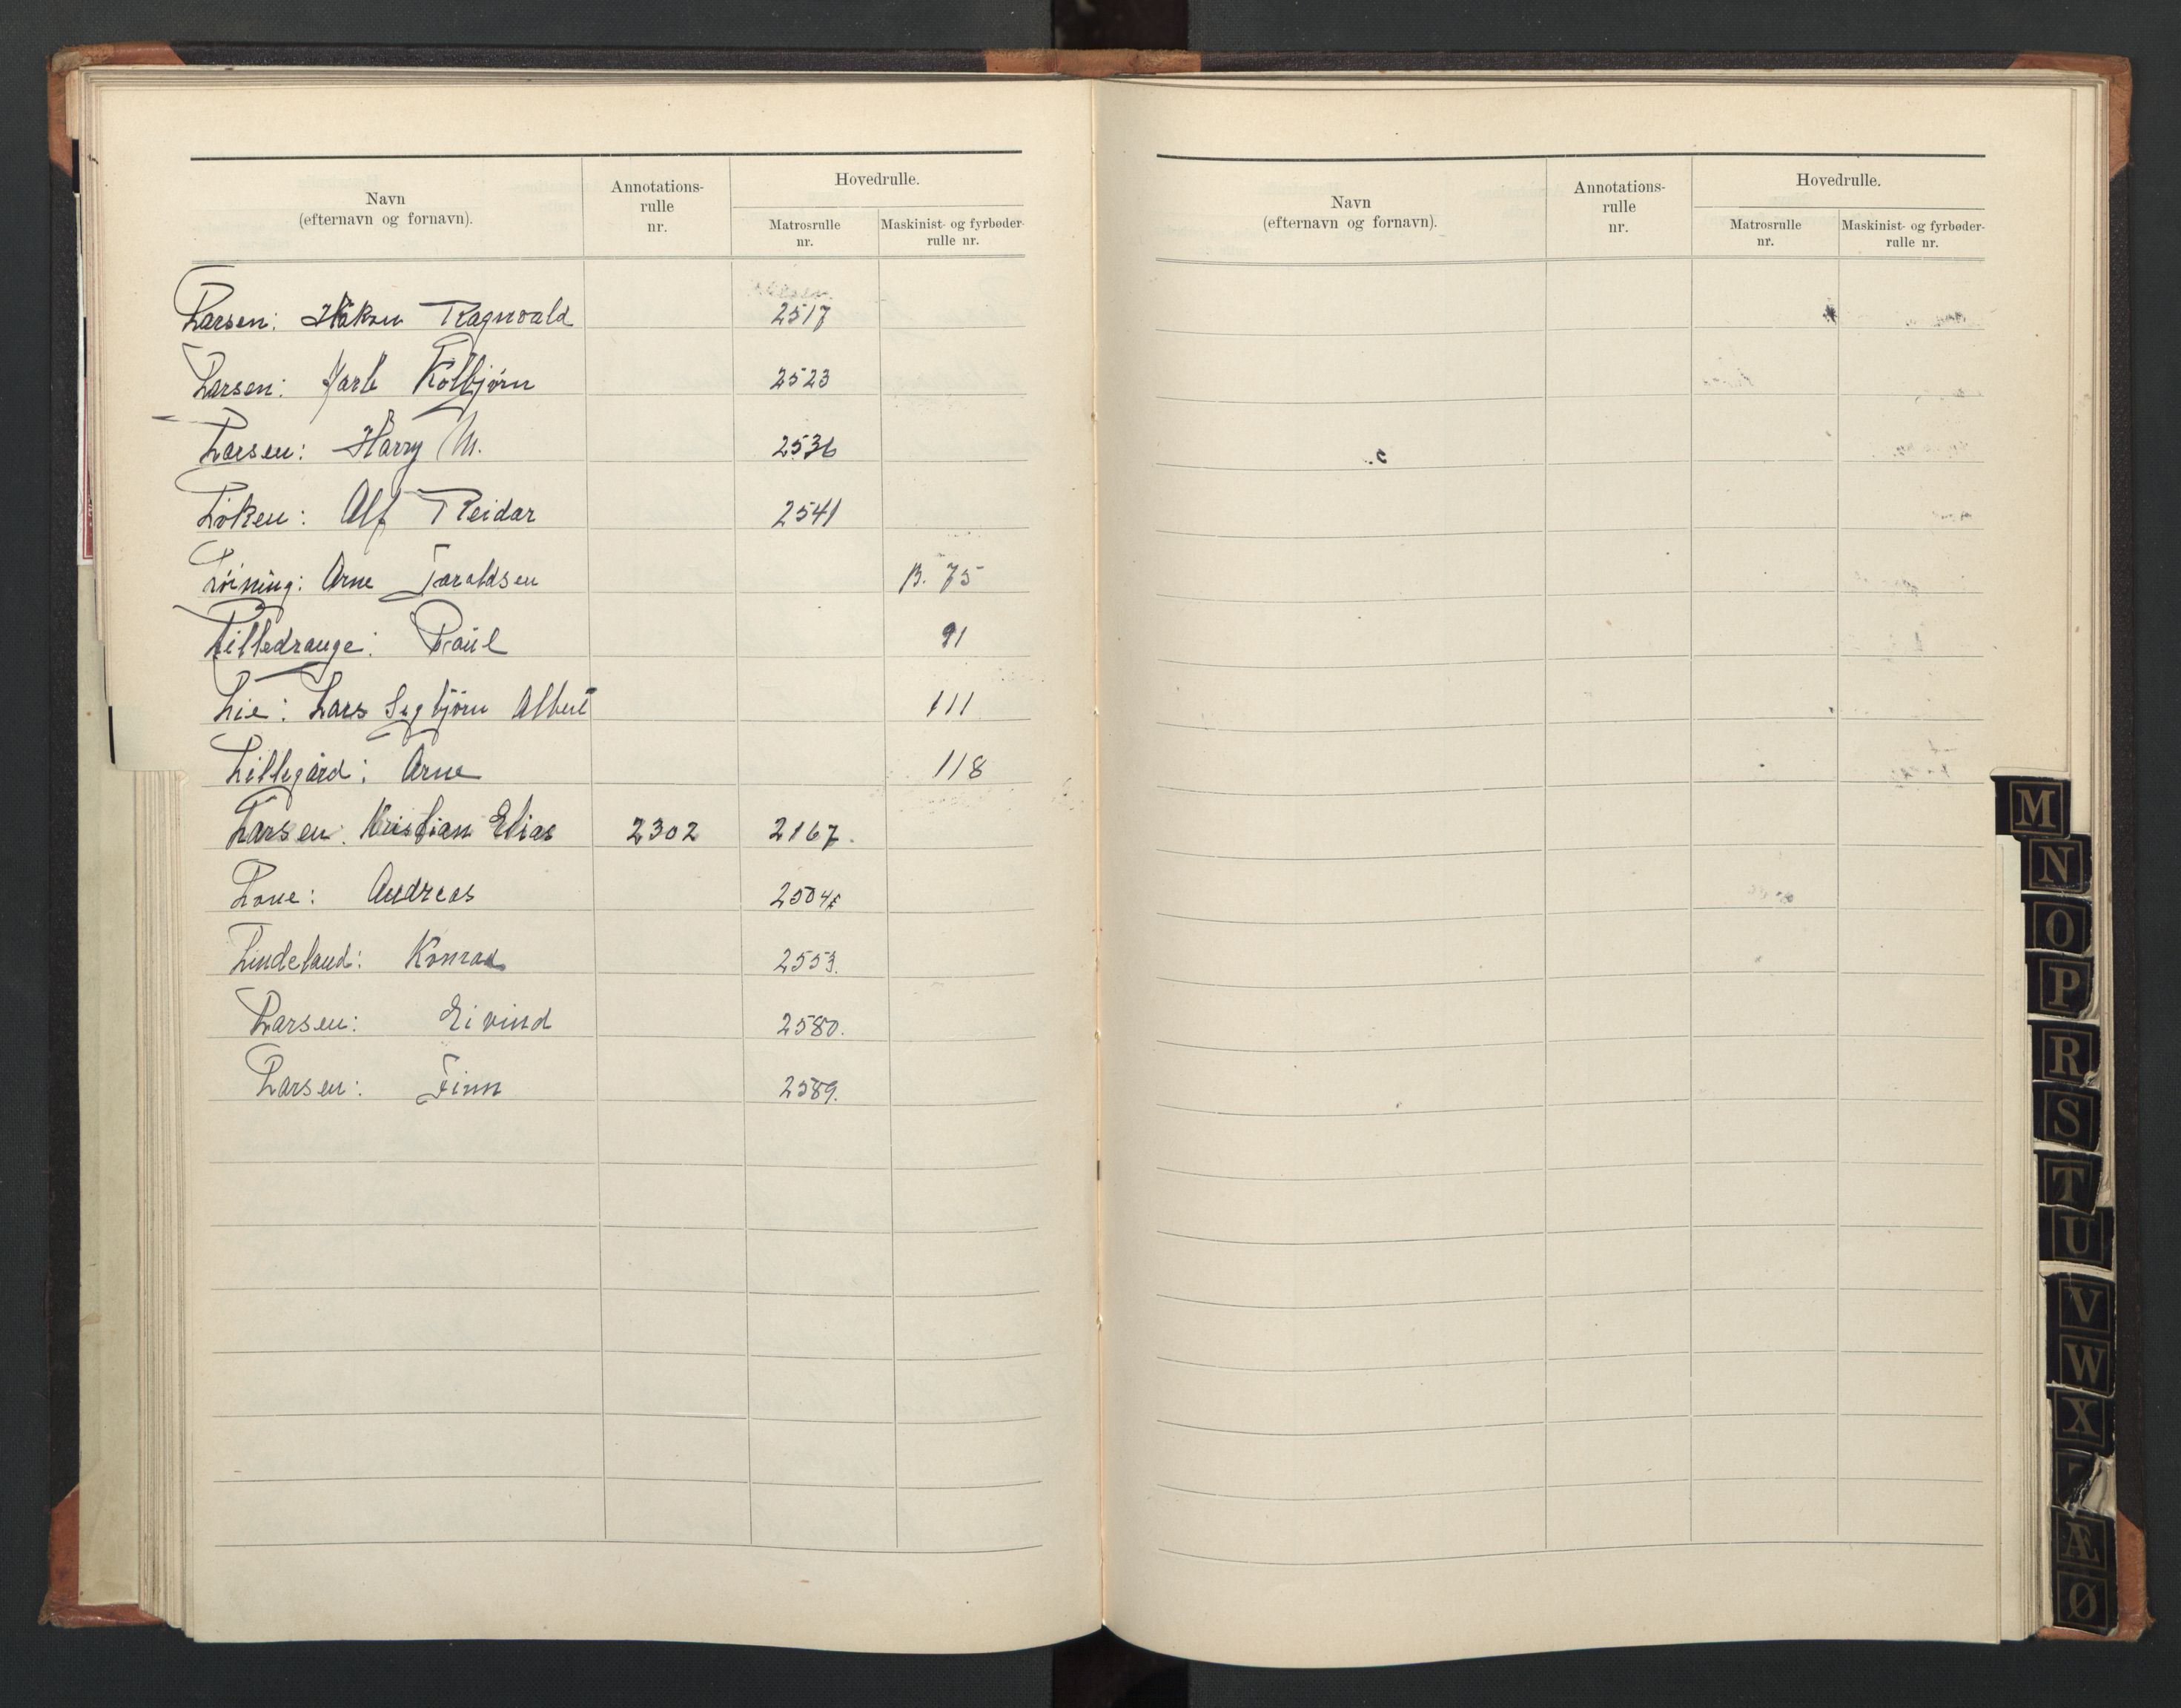 Navn (efternavn og fornavn). Annotations-rulle nr. Hovedrulle. Matrosrulle nr. Maskinist- og fyrbøder-rulle nr.
Larsen: Håkon Ragnvald 2517
Larsen: Jarl Kolbjørn 2523
Larsen: Harry M. 2536
Løken: Alf Reidar 2541
Arne Taraldsen B. 75
Lilledrange: Paul 91
Lie: Lars Sigbjørn Albert 111
Lillegård: Arne 118
Larsen: Kristian Elias 2302 2167.
Lone: Andreas 2504
Lindeland: Konrad 2553.
Larsen: Eivind 2580.
Larsen: Finn 2589.
Navn (efternavn og fornavn). Annotations-rulle nr. Hovedrulle. Matrosrulle nr. Maskinist- og fyrbøder-rulle nr.
M
N
O
P
R
S
T
U
V
W
X
Æ
Ø